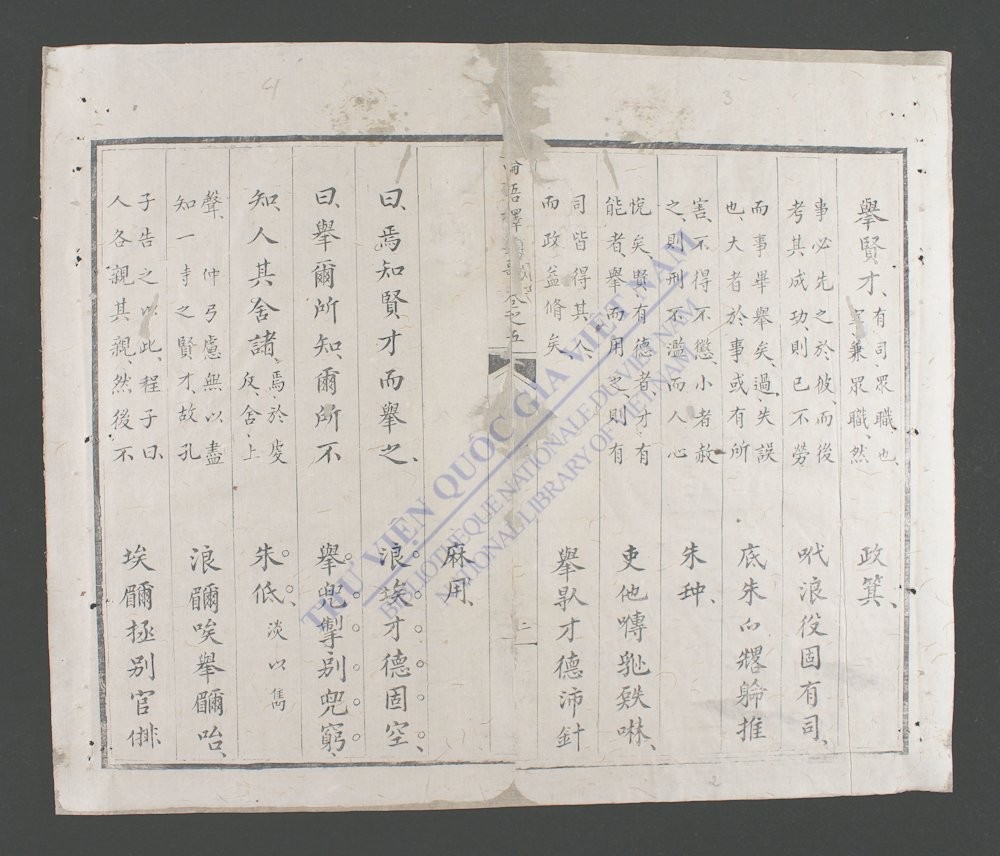 舉賢才、有司眾職也、
宰兼眾職、然
事必先之於彼、而後
考其成功、則己不勞
而事畢舉矣、過失誤
也、大者於事或有所
害、不得不懲、小者赦
之、則刑不濫而人心
悅矣、賢有德者、才有
能者、舉而用之、則有
司皆得其人、
而政益脩矣、
政箕、
吠浪役固有司、
底朱
推
朱
吏他
舉 才德沛針
論語釋 歌 卷之五
二
麻用、
曰、焉知賢才而舉之、
浪埃才德固空、
曰、舉爾所知、爾所不
舉兜掣别兜窮、
知、人其舍諸、焉於虔
反、舍上
聲、仲弓慮無以盡
知一時之賢才、故孔
子告之以此、程子曰、
人各親其親、然後不
朱低、淡以雋
浪 唉舉 咍、
埃 拯别官
THƯ VIỆN QUỐC GIA VIỆT NAM
BIBLIOTHÈQUE NATIONALE DU VIETNAM
NATIONAL LIBRARY OF VIETNAM
4
3
2